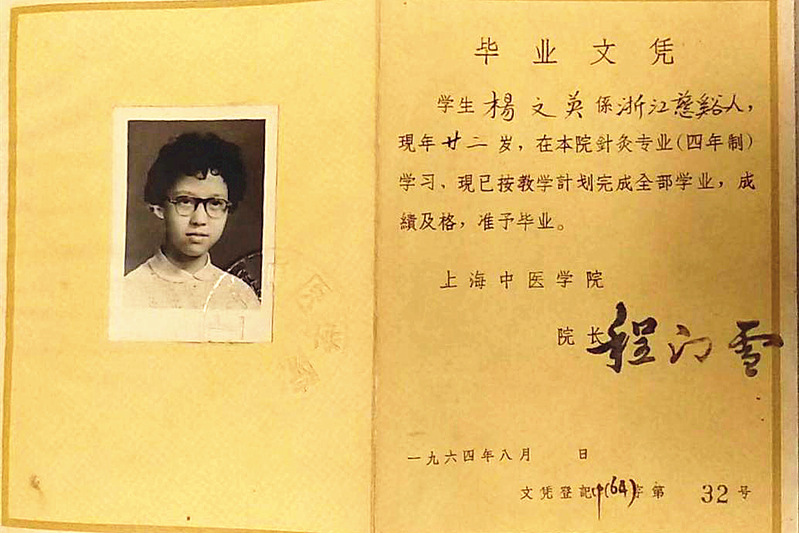 毕业文凭
学生楊文英係浙江慈谿人，
現年廿二岁，在本院針灸专业(四年制)
学习、現已按教学計划完成全部学业，成
績及格，准予毕业。
上海中医学院
院长程门雪
一九六四年八月 日
文凭登記中(64)字第 32 号